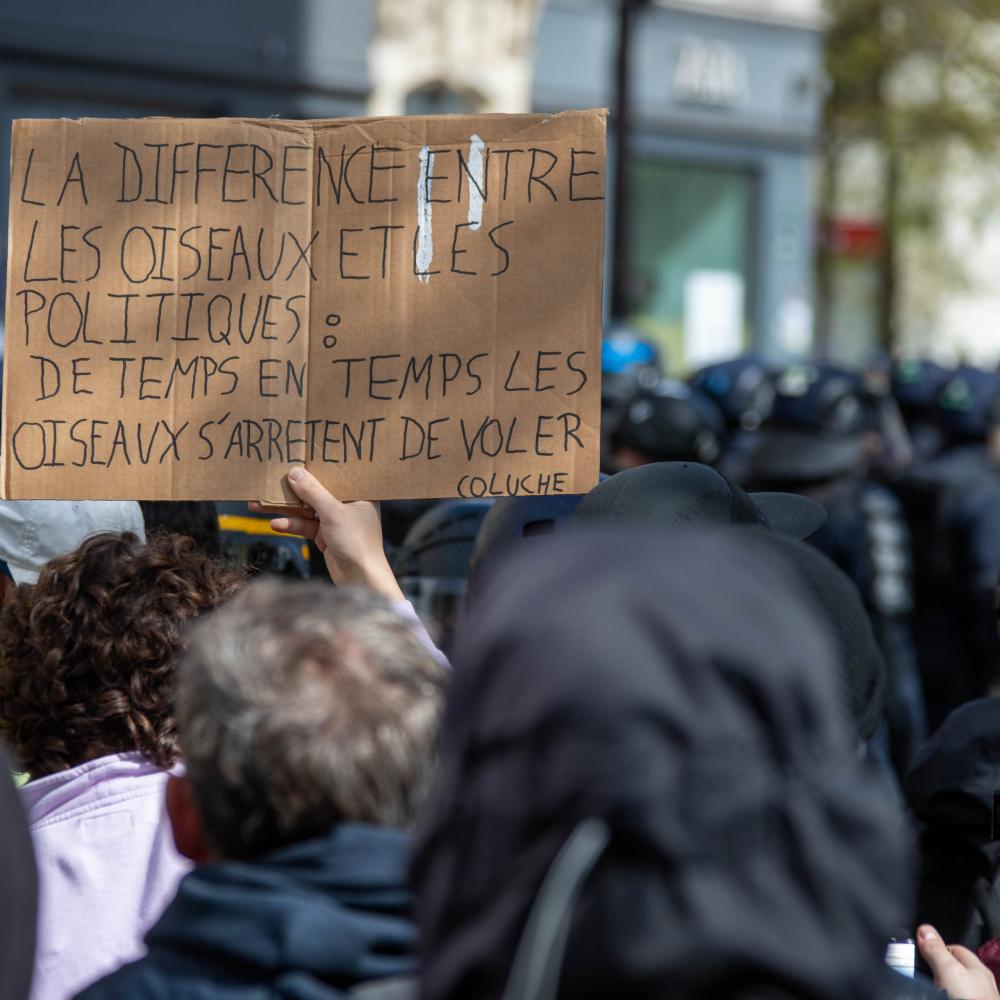 LA DIFFERENCE ENTRE
LES OISEAUX ET LES
POLITIQUES :
DE TEMPS EN TEMPS LES
OISEAUX S'ARRETENT DE VOLER
COLUCHE